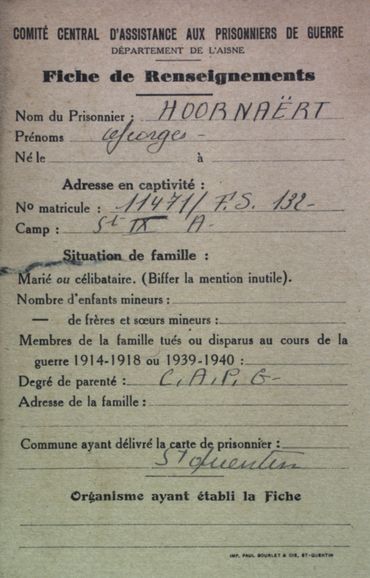 COMITÉ CENTRAL D'ASSISTANCE AUX PRISONNIERS DE GUERRE
DÉPARTEMENT DE L'AISNE
Fiche de Renseignements
Nom du Prisonnier : HOORNAËRT
Prénoms Georges -
Né le à
Adresse en captivité :
No matricule : 11471/ F.S. 132-
Camp : St IX A-
Situation de famille :
Marié ou célibataire. (Biffer la mention inutile).
Nombre d'enfants mineurs :
— de frères et sœurs mineurs :
Membres de la famille tués ou disparus au cours de la
guerre 1914-1918 ou 1939-1940 :
Degré de parenté : C.A.P.G-
Adresse de la famille :
Commune ayant délivré la carte de prisonnier :
St Quentin
Organisme ayant établi la Fiche
IMP. PAUL BOURLET & CIE, ST-QUENTIN